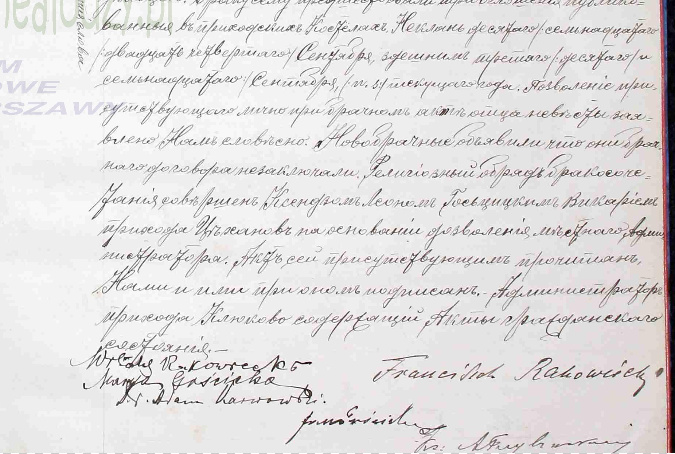 ванныя въ приходскихъ Костелахъ Неклань десятаго /: семнадцатаго
двадцать четвертаго / Сентября, здешнимъ третьяго / десятаго / и
семьнадцатаго / Сентября, / н. s / текущаго года. Позволеніе при-
сутствующаго лично при брачномъ актѣ отца невѣсты зая-
влено Намъ словѣсно. Новобрачные объявили что они брач-
наго договора незаключали. Религіозный обрядъ бракосоче-
танія совершенъ Ксендзомъ Леономъ Госьцицкимъ Викаріемъ
прихода Цѣхановъ на основаніи дозволенія мѣстнаго Адми-
нистратора. Актъ сей присутствующимъ прочитанъ,
Нами и ими при ономъ подписанъ. - Администраторъ
прихода Клюково содержащій Акты гражданскаго
состоянія. -
Witold Rakowieck
Marya Gościcka
Dr. Adam Karwowski.
Franciszek Rakowiecki
Ks: A